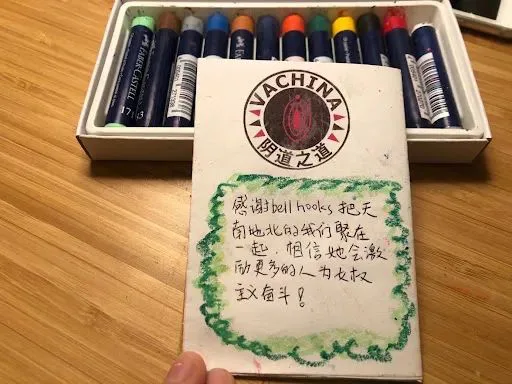 VACHINA
阴道之道
感谢bell hooks 把天
南地北的我们聚在
一起，相信她会激
励更多的人为女权
主义奋斗！
FABER-CASTELL